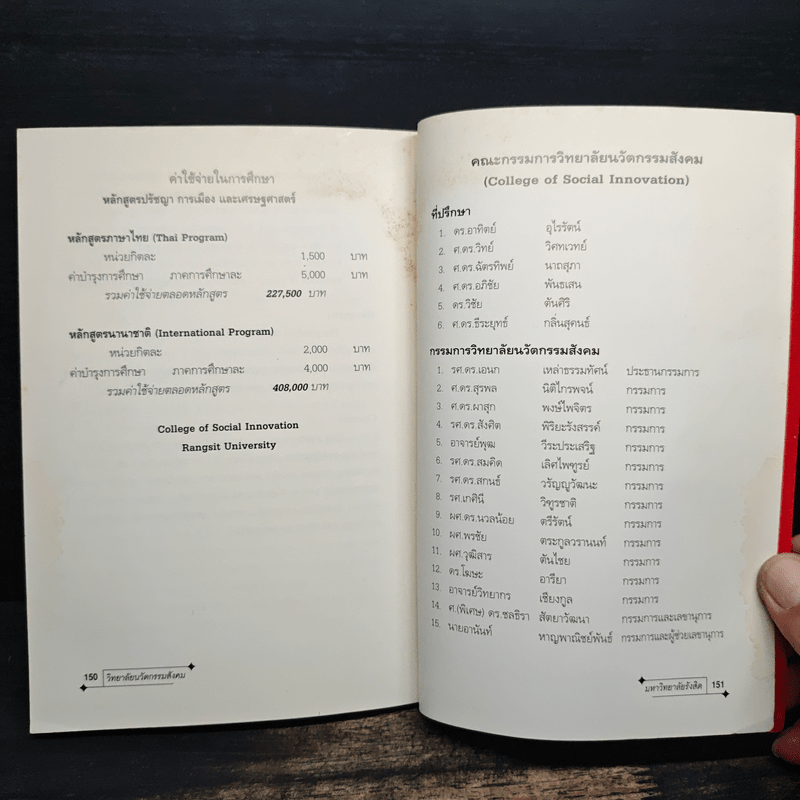 ค่าใช้จ่ายในการศึกษา
หลักสูตรปรัชญา การเมือง และเศรษฐศาสตร์
หลักสูตรภาษาไทย (Thai Program)
หน่วยกิตละ 1,500 บาท
ค่าบำรุงการศึกษา ภาคการศึกษาละ 5,000 บาท
รวมค่าใช้จ่ายตลอดหลักสูตร 227,500 บาท
หลักสูตรนานาชาติ (International Program)
หน่วยกิตละ 2,000 บาท
ค่าบำรุงการศึกษา ภาคการศึกษาละ 4,000 บาท
รวมค่าใช้จ่ายตลอดหลักสูตร 408,000 บาท
College of Social Innovation
Rangsit University
150 วิทยาลัยนวัตกรรมสังคม
คณะกรรมการวิทยาลัยนวัตกรรมสังคม
(College of Social Innovation)
ที่ปรึกษา
1. ดร.อาทิตย์ อุไรรัตน์
2. ศ.ดร.วิทย์ วิศทเวทย์
3. ศ.ดร.ฉัตรทิพย์ นาถสุภา
4. ศ.ดร.อภิชัย พันธเสน
5. ดร.วิชัย ตันศิริ
6. ศ.ดร.ธีระยุทธ์ กลิ่นสุคนธ์
กรรมการวิทยาลัยนวัตกรรมสังคม
1. รศ.ดร.เอนก เหล่าธรรมทัศน์ ประธานกรรมการ
2. ศ.ดร.สุรพล นิติไกรพจน์ กรรมการ
3. ศ.ดร.ผาสุก พงษ์ไพจิตร กรรมการ
4. รศ.ดร.สังศิต พิริยะรังสรรค์ กรรมการ
5. อาจารย์พุฒ วีระประเสริฐ กรรมการ
6. รศ.ดร.สมคิด เลิศไพฑูรย์ กรรมการ
7. รศ.ดร.สกนธ์ วรัญญูวัฒนะ กรรมการ
8. รศ.เกศินี วิฑูรชาติ กรรมการ
9. ผศ.ดร.นวลน้อย ตรีรัตน์ กรรมการ
10. ผศ.พรชัย ตระกูลวรานนท์ กรรมการ
11. ผศ.วุฒิสาร ตันไชย กรรมการ
12. ดร.โฆษะ อารียา กรรมการ
13. อาจารย์วิทยากร เชียงกูล กรรมการ
14. ศ.(พิเศษ) ดร.ชลธิรา สัตยาวัฒนา กรรมการและเลขานุการ
15. นายอานันท์ หาญพาณิชย์พันธ์ กรรมการและผู้ช่วยเลขานุการ
มหาวิทยาลัยรังสิต 151